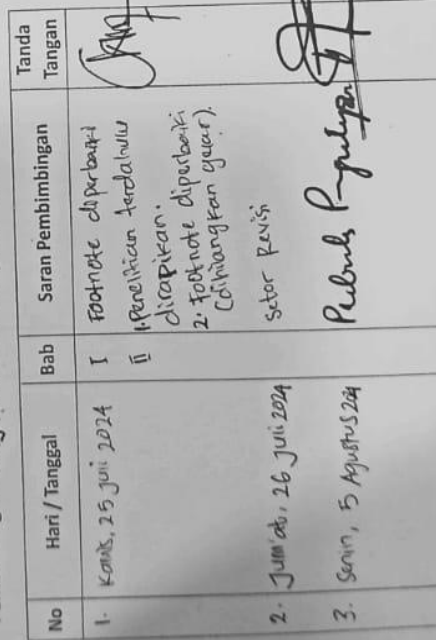 No Hari / Tanggal Bab Saran Pembimbingan Tanda Tangan
1. Kamis, 25 Juli 2024 I Footnote diperbaiki
II 1. Penelitian terdahulu
dirapikan.
2. Footnote diperbaiki
(dihilangkan gelar).
2. Jum'at, 26 Juli 2024 Setor Revisi
3. Senin, 5 Agustus 2024